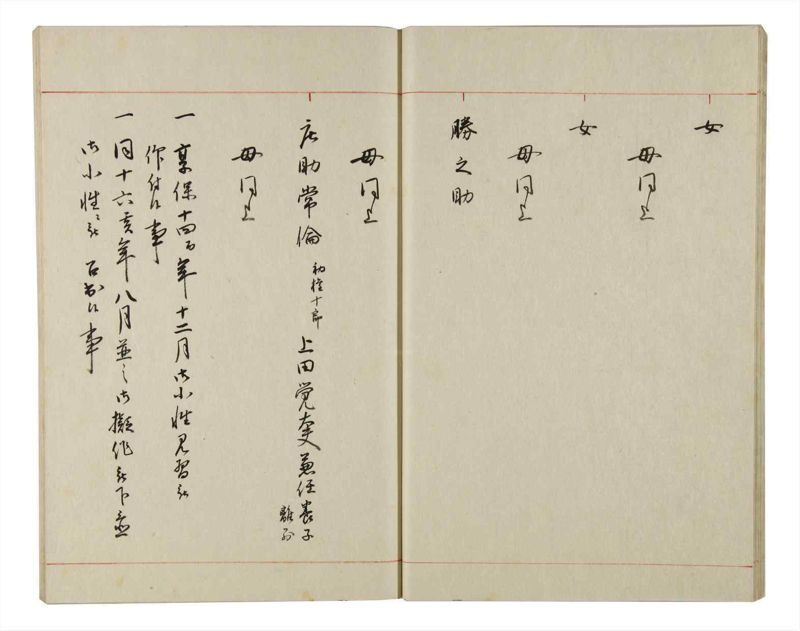 女
母同上
女
母同上
勝之助
母同上
庄助常倫 初権十郎 上田覚太夫兼任養子 離別
母同上
一 享保十四酉年十二月御小性見習被
仰付候事
一 同十六亥年八月並之御擬作被下置
御小性被 召出候事